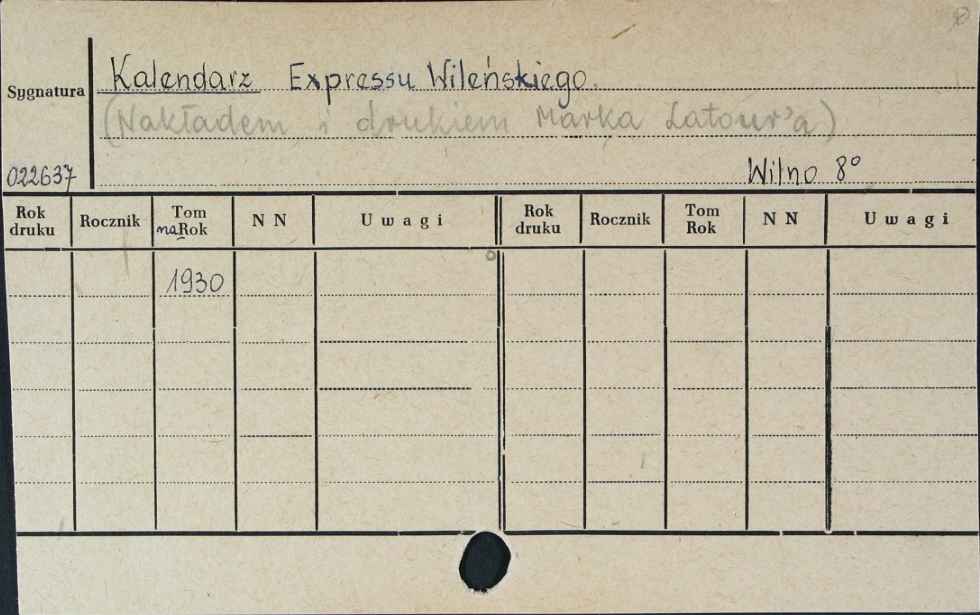 Kalendarz Expressu Wileńskiego.
Sygnatura
(Nakładem i drukiem Marka Latour'a)
022637
Wilno 8°
Rok druku Rocznik Tom na Rok N N Uwagi Rok druku Rocznik Tom Rok N N Uwagi
1930